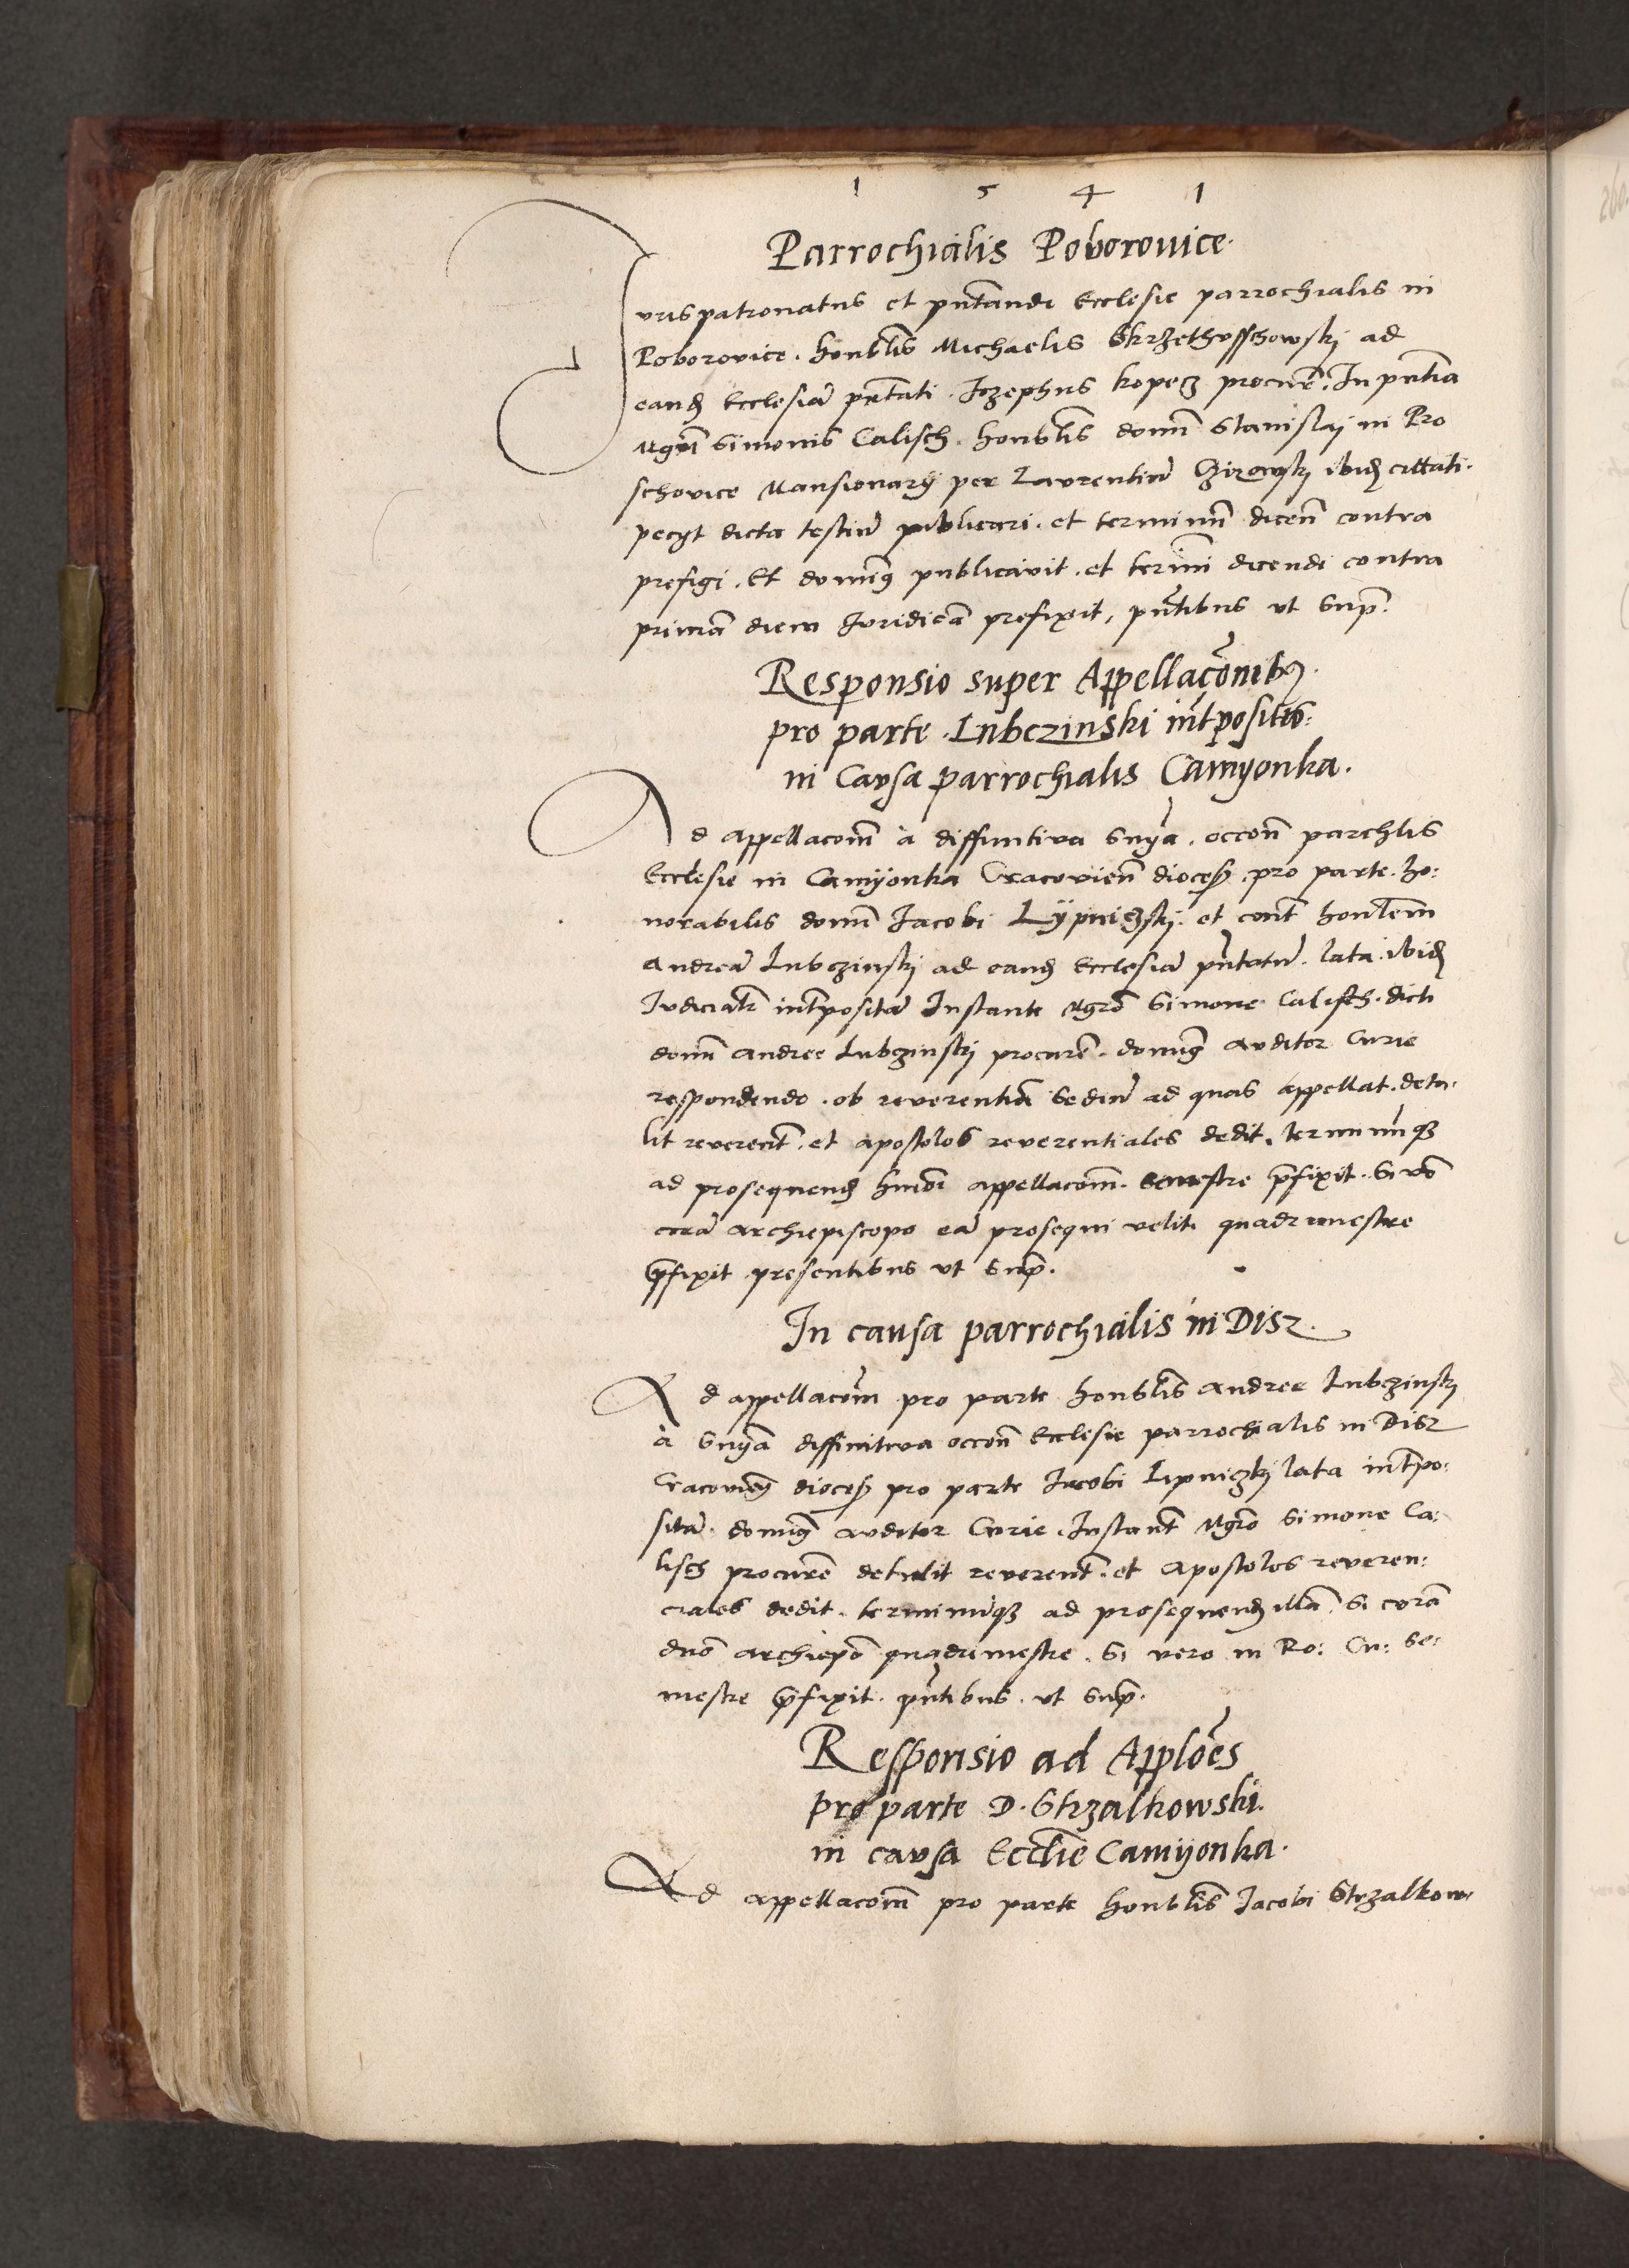 1 5 4 1
Parrochialis Poborouice.
Juris patronatus et pñtandi Ecclesie parrochialis in
Poborovice. honblis Michaelis Skrzethusschowskj ad
eand Ecclesiã pñtati. Jozephus kopecz procur. In pñtia
Mgri Simonis Calisch. honblis domi Stanislaj in Pro
schovice Mansionarÿ per Laurentiũ ibid cittati.
pecyt dicta testiũ publicari. et terminũ dicen contra
prefigi. Et domin9 publicavit. et termi dicendi contra
primã diem Juridicã prefixit, pñtibus ut Sup.
Responsio super Appellaçõnib9.
pro parte. Lubczinski intpositis:
in Causa parrochialis Camyonka.
Ad appellacom à diffinitiva Snÿa. occon parchlis
Ecclesie in Camÿonka Cracovien dioces. pro parte. ho:
norabilis domi Jacobi Lÿpniczskj. et cont honlem
Andreã Lubczinskj ad eand Ecclesiã pñtatũ. lata. ibid
Judicialr intpositã Instante Mgro Simone Calisch. dicti
domi Andree Lubczinskj procure. domin9 auditor Curie
respondendo. ob reverentiã Sediũ ad quas appellat. detu.
lit reverent. et apostolos reverentiales dedit. terminũq3
ad prosequend hmõi appellacom. Semestre pfixit. Si vo
corã archiepiscopo eã prosequi velit. quadrimestre
pfixit. presentibus ut Sup.
In causa parrochialis in Disz.
Ad appellacom pro parte honblis Andree Lubczinskj
à Snÿa diffinitiva occon Ecclesie parrochialis in Disz
Cracovien dioces pro parte Jacobi Lipniczkj lata intpo:
sitã. domin9 auditor Curie. Instant Mgro Simone Ca:
lisch procure detulit reverent. et Apostolos reveren:
ciales dedit. terminũq3 ad prosequend illã. Si corã
dno archiepo quadrimestre. Si vero in Ro: Cu: Se:
mestre pfixit. pñtibus. ut Sup.
Responsio ad Applões
pro parte D. Strzalkowski.
in causa Ecclie Camÿonka.
Ad appellacom pro parte honblis Jacobi Strzalkow